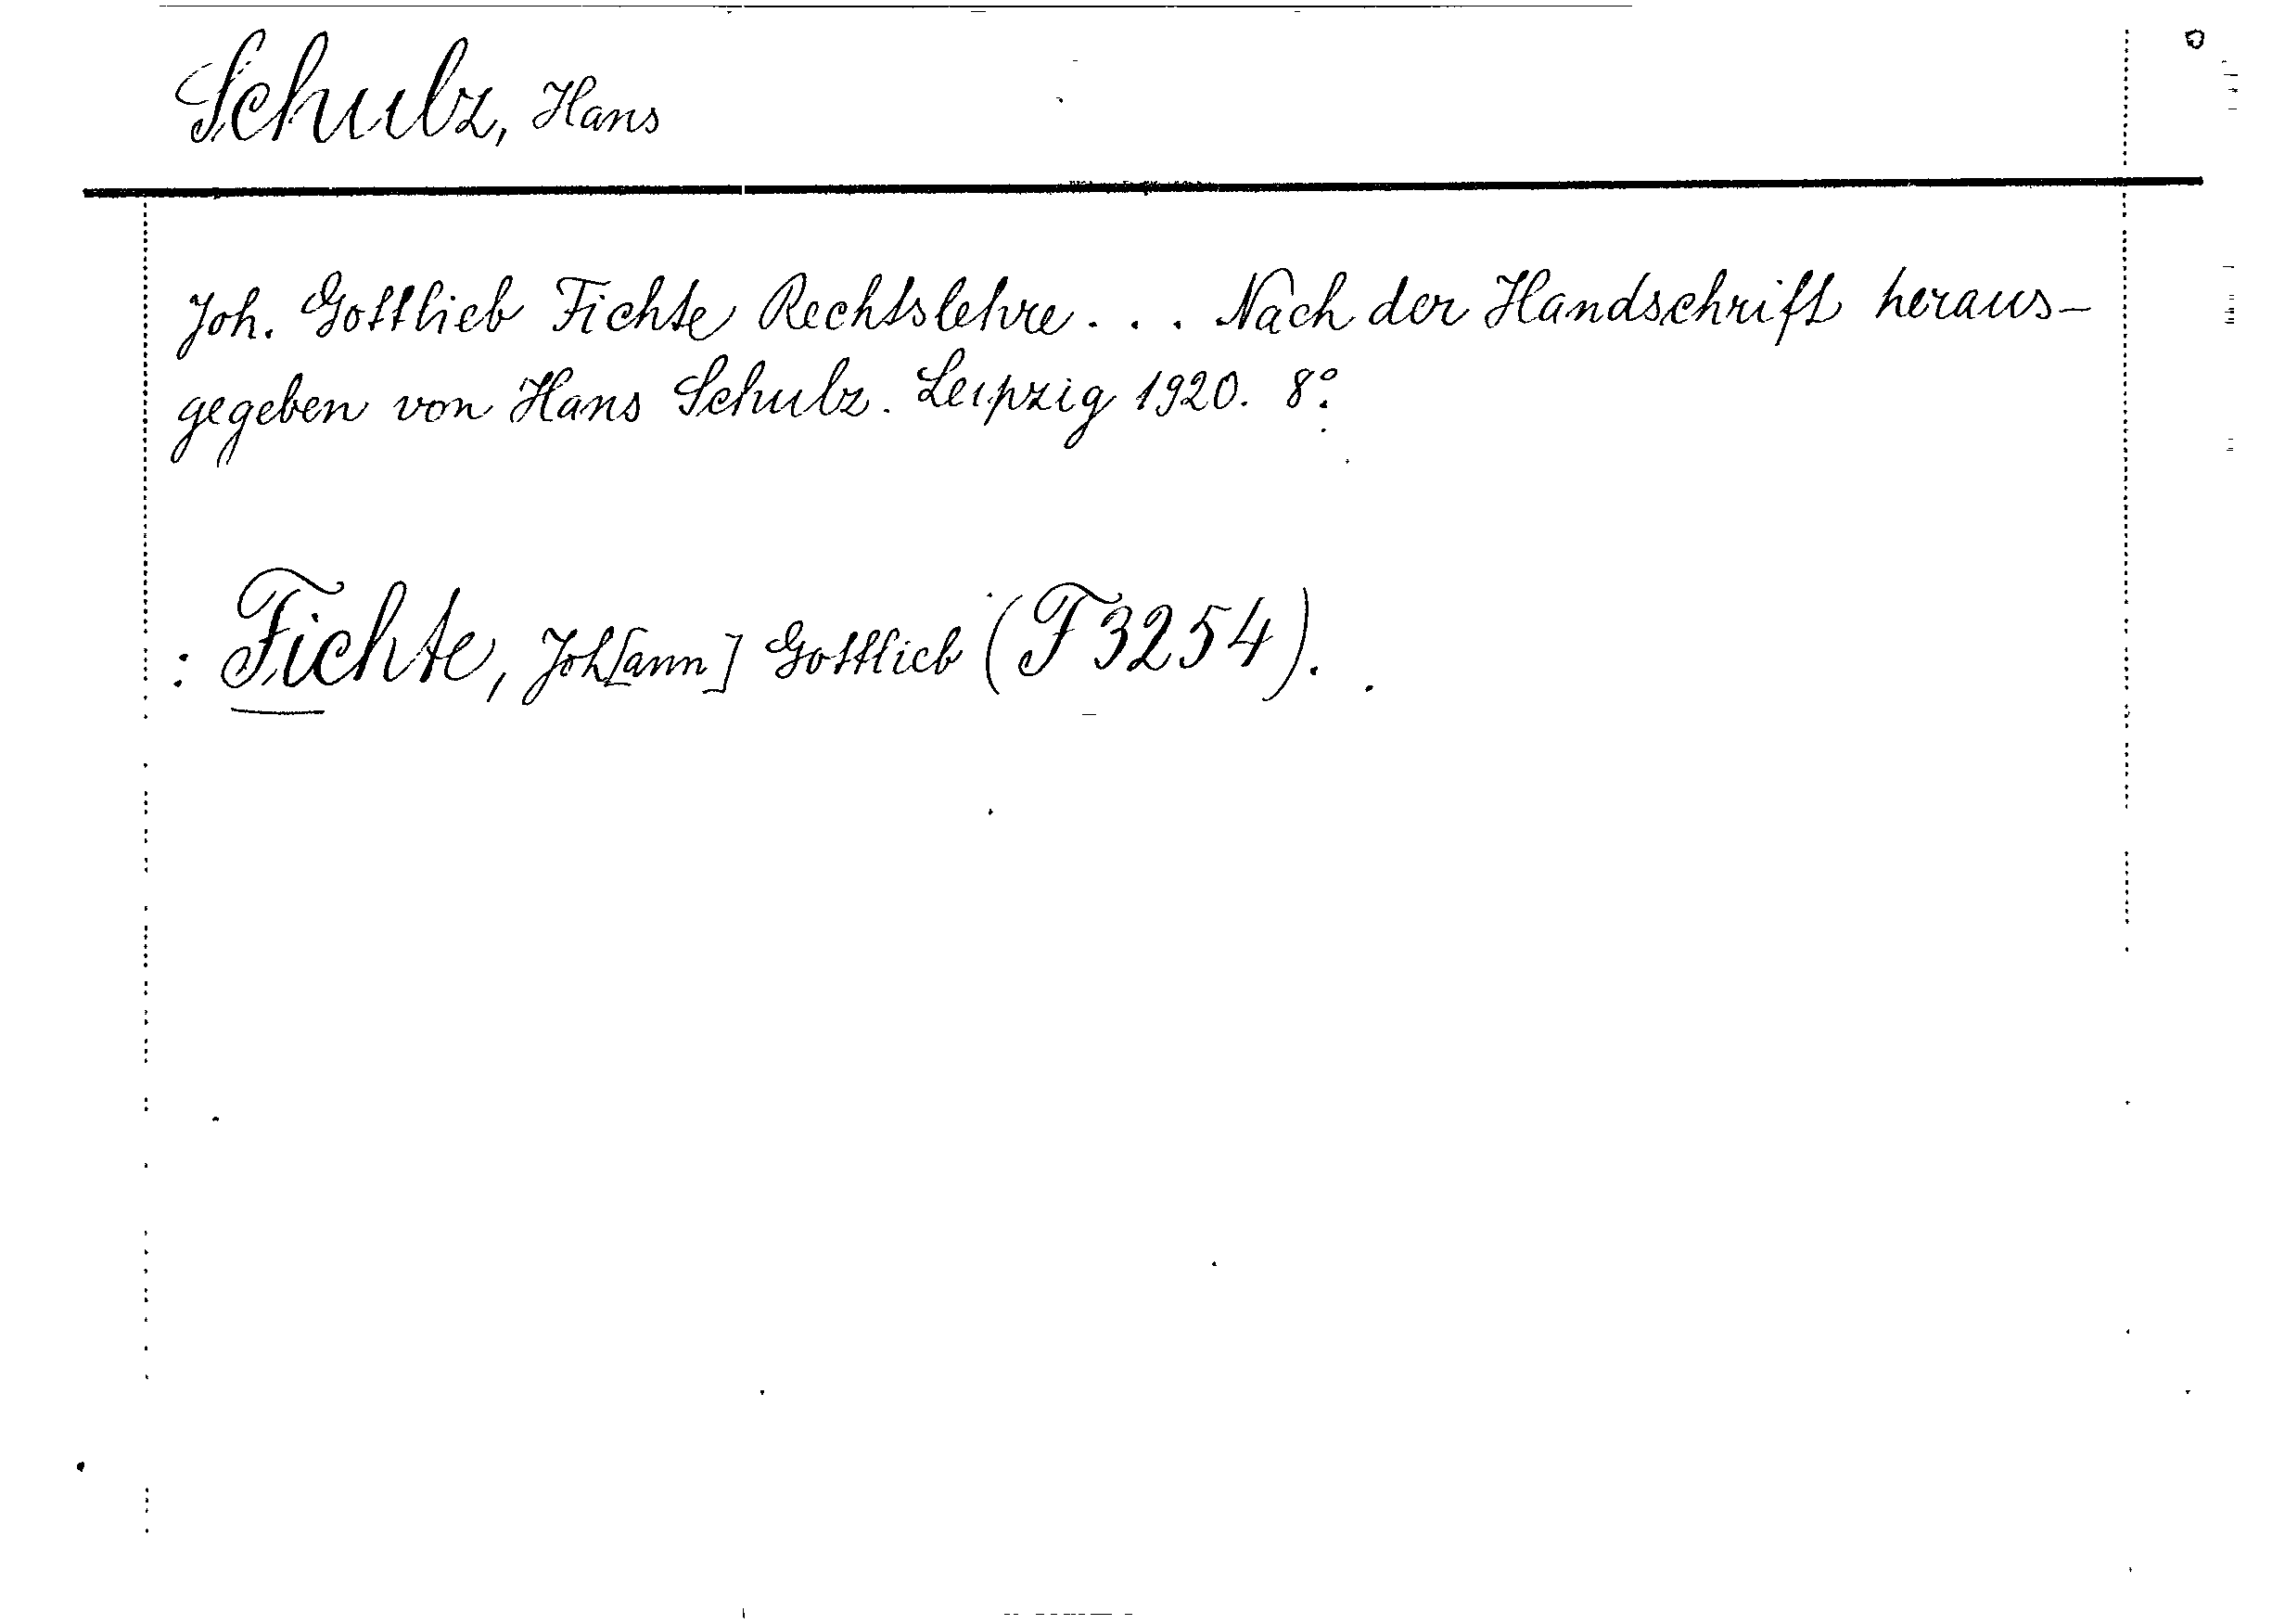 Schulz, Hans
Joh. Gottlieb Fichte Rechtslehre . . . Nach der Handschrift heraus-
gegeben von Hans Schulz. Leipzig 1920. 8°.
: Fichte, Joh[ann] Gottlieb (F 3254).